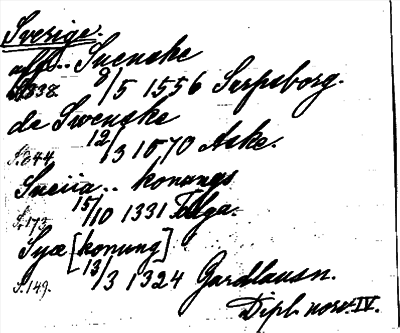 Sverige.
alf .. Suenske
S.838. 9/5 1556 Sarpsborg.
de Swenske
S.844. 12/3 1570 Aske.
Sueiia .. konungs
S.173. 15/10 1331 Tælga.
Syæ [konung]
S.149. 13/3 1324 Gardlausn.
Dipl. norv. IV.